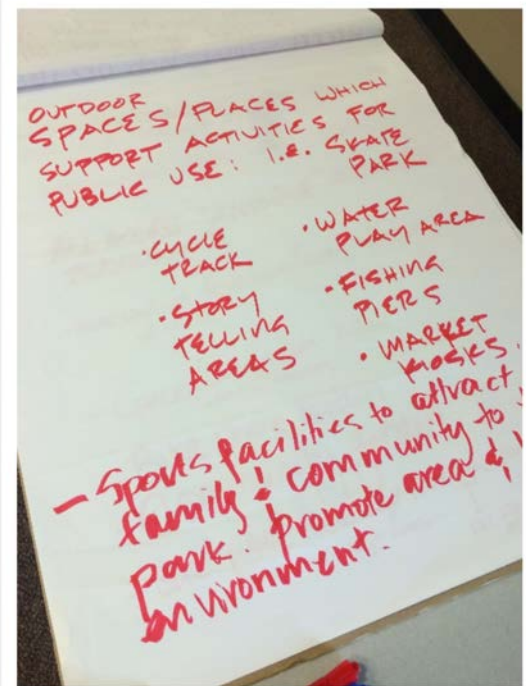 OUTDOOR
SPACES/PLACES WHICH
SUPPORT ACTIVITIES FOR
PUBLIC USE: i.e. SKATE
PARK
• CYCLE
TRACK
• STORY
TELLING
AREAS
• WATER
PLAY AREA
• FISHING
PIERS
• MARKET
KIOSKS
- Sports facilities to attract
family & community to
park. Promote area &
environment.